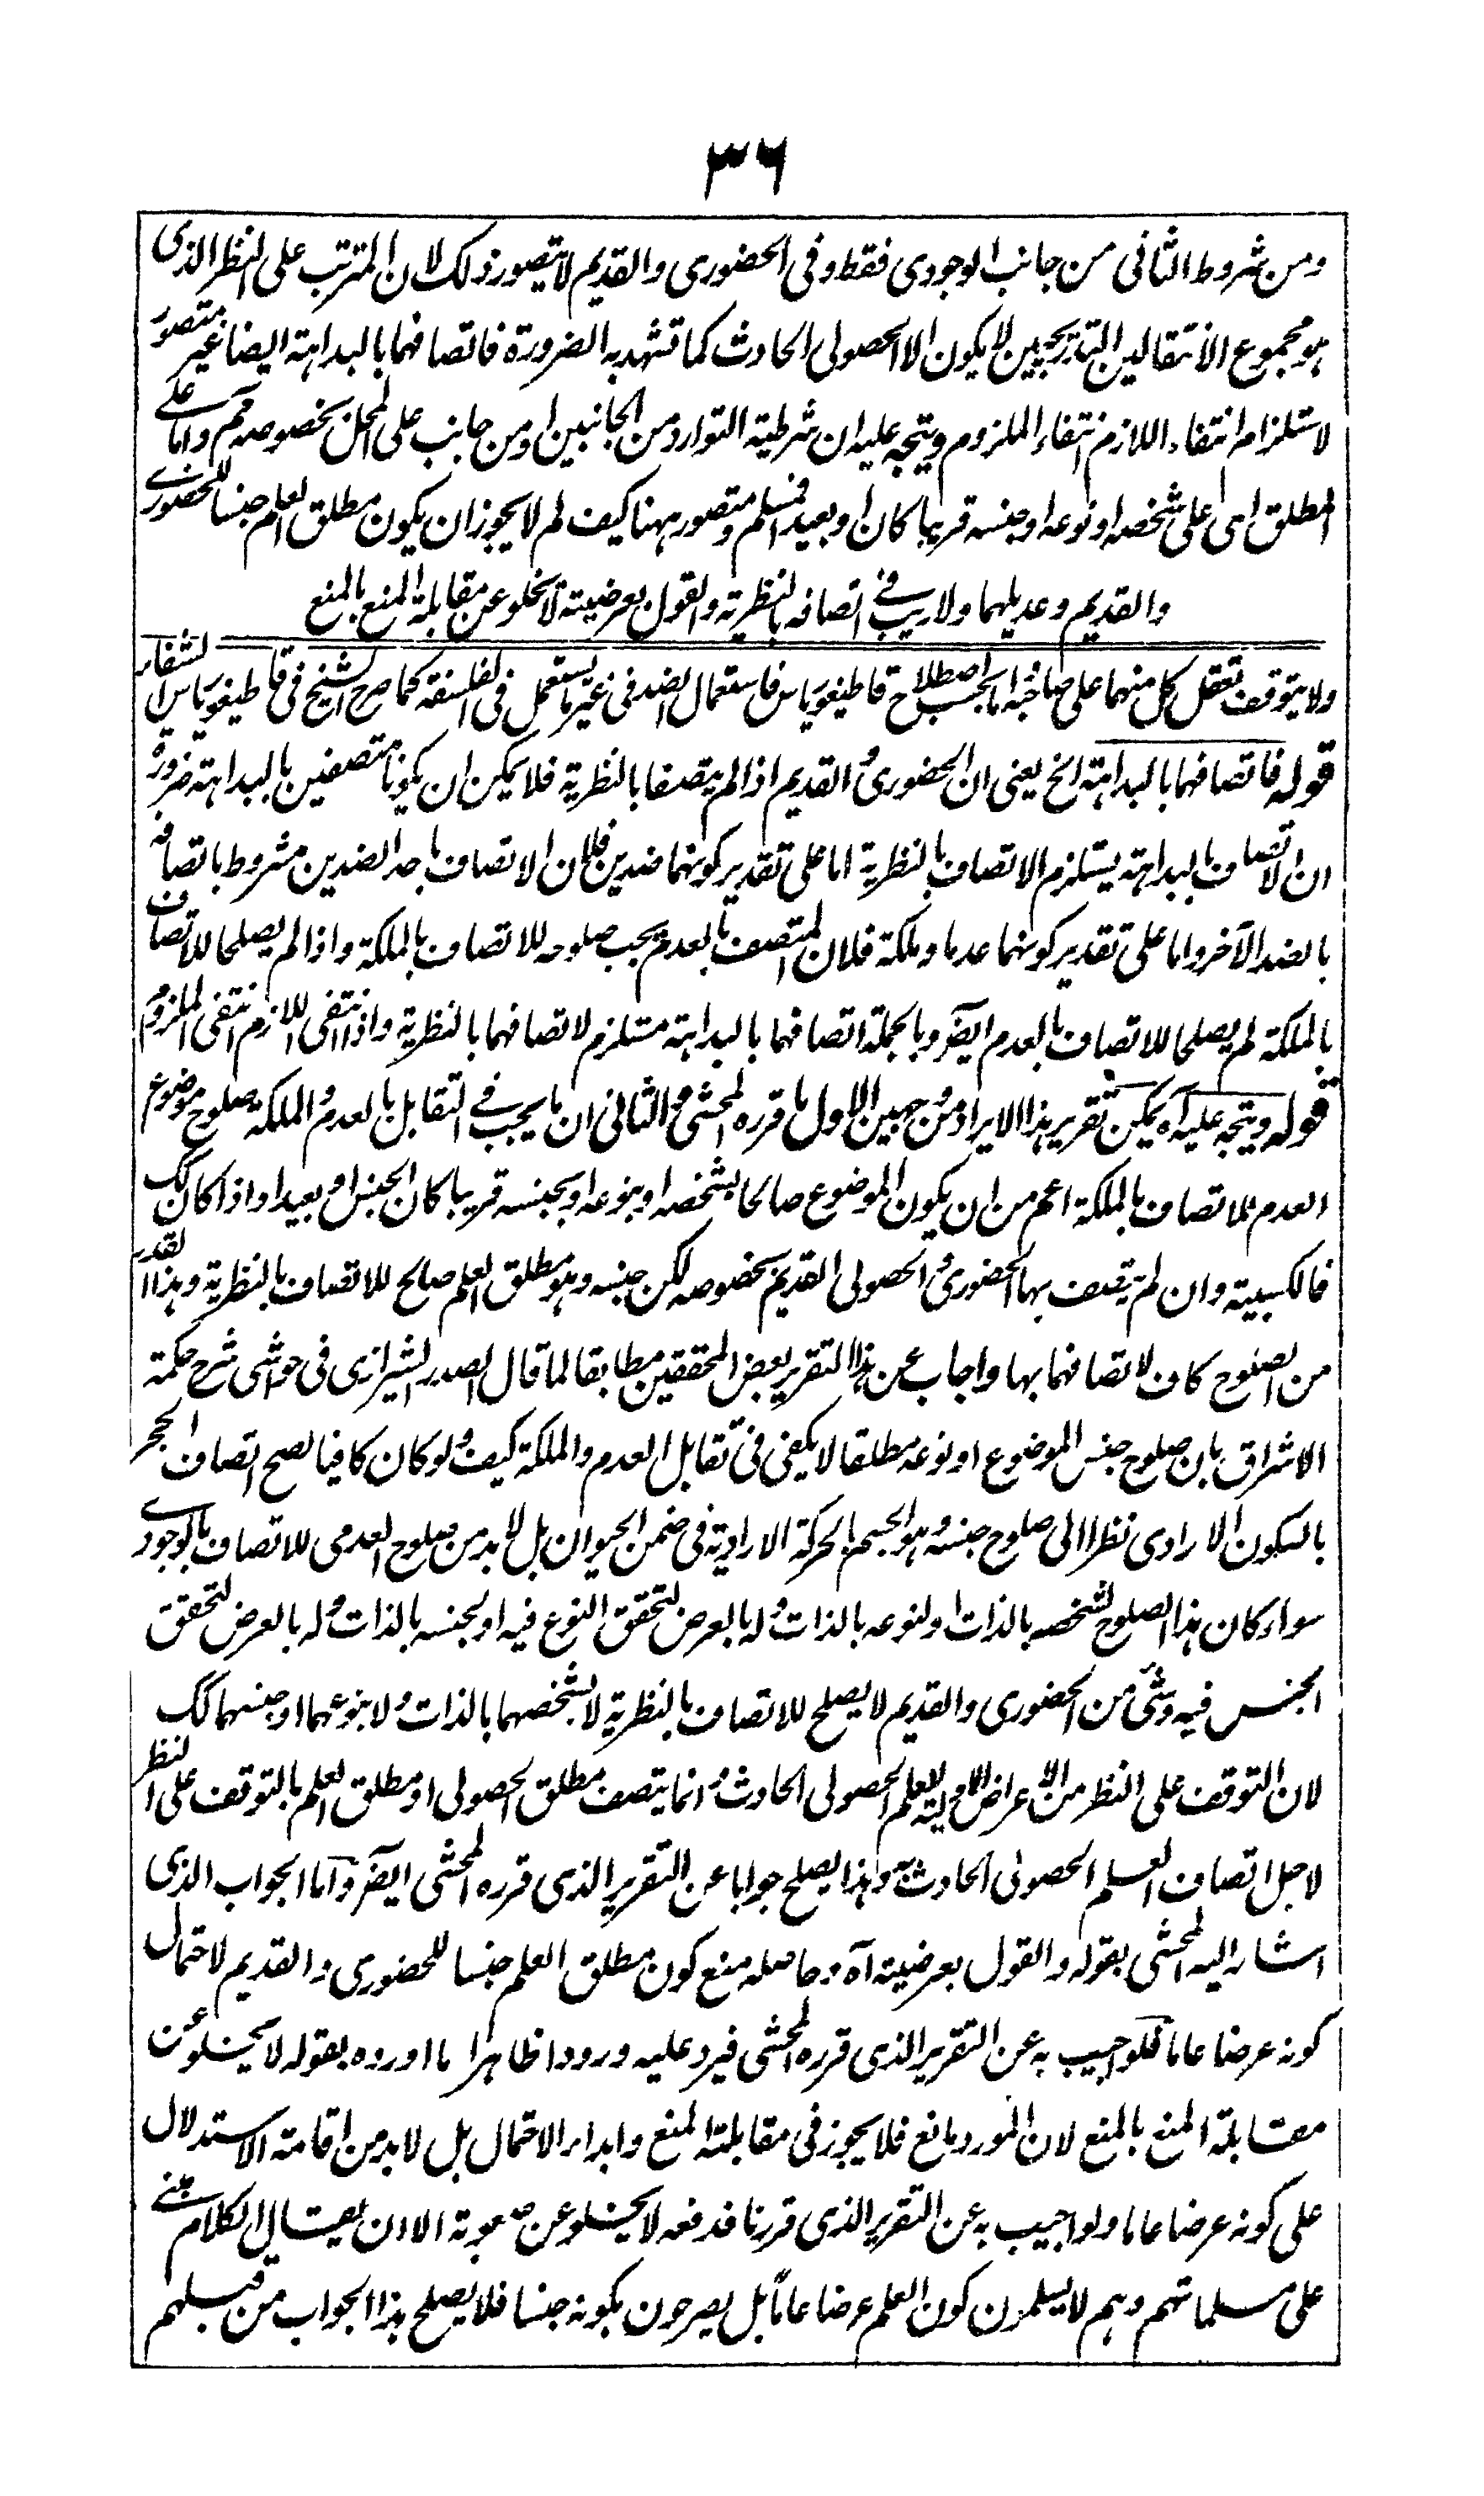 ٣٦
ومن شروط الثانى من جانب الوجودى فقط وفى الحضورى والقديم لا يتصور ذلك لان المترتب على النظر الذى
هو مجموع الانتقالين التدريجيين لا يكون الا الحصولى الحادث كما تشهد به الضرورة فاتصافهما بالبداهة ايضا غير متصور
لاستلزام انتفاء اللازم انتفاء الملزوم ويتجه عليه ان شرطية التوارد من الجانبين او من جانب على المحل بخصوصه مم واما على
المطلق اى على شخصه او نوعه او جنسه قريبا كان او بعيدا فمسلم ومتصور ههنا كيف لم لا يجوز ان يكون مطلق العلم جنسا للحضورى
والقديم وعديلهما ولا ريب فى اتصافه بالنظرية والقول بعرضيته لا يخلو عن مقابلة المنع بالمنع
ولا يتوقف تعقل كل منهما على صاحبه اما بحسب اصطلاح قاطيغورياس فاستعمال الضد فى غير ما يستعمل فى الفلسفة كما صرح الشيخ فى قاطيغورياس الشفاء
قوله فاتصافهما بالبداهة الخ يعنى ان الحضورى والقديم اذا لم يتصفا بالنظرية فلا يمكن ان يكونا متصفين بالبداهة ضرورة
ان الاتصاف بالبداهة يستلزم الاتصاف بالنظرية اما على تقدير كونهما ضدين فلان الاتصاف باحد الضدين مشروط باتصافه
بالضد الآخر واما على تقدير كونهما عدما وملكة فلان المتصف بالعدم يجب صلوحه للاتصاف بالملكة واذا لم يصلحا للاتصاف
بالملكة لم يصلحا للاتصاف بالعدم ايضً وبالجملة اتصافهما بالبداهة مستلزم لاتصافهما بالنظرية واذا انتفى اللازم انتفى الملزوم
قوله ويتجه عليه آه يمكن تقرير هذا الايراد من وجهين الاول ما قرره المحشى والثانى ان ما يجب فى التقابل بالعدم والملكة صلوح موضوع
العدم للاتصاف بالملكة اعم من ان يكون الموضوع صالحا بشخصه او بنوعه او بجنسه قريبا كان الجنس او بعيدا واذا كان كك
فالكسبية وان لم يتصف بها الحضورى والحصولى القديم بخصوصه لكن جنسه وهو مطلق العلم صالح للاتصاف بالنظرية وهذا القدر
من الصلوح كاف لاتصافهما بها واجاب عن هذا التقرير بعض المحققين مطابقا لما قال الصدر الشيرازى فى حواشى شرح حكمة
الاشراق بان صلوح جنس الموضوع او نوعه مطلقا لا يكفى فى تقابل العدم والملكة كيف ولو كان كافيا لصح اتصاف الحجر
بالسكون الارادى نظرا الى صلوح جنسه وهو الجسم بالحركة الارادية فى ضمن الحيوان بل لا بد من صلوح العدمى للاتصاف بالوجودى
سواء كان هذا الصلوح لشخصه بالذات او لنوعه بالذات وله بالعرض لتحقق النوع فيه او لجنسه بالذات وله بالعرض لتحقق
الجنس فيه وشئ من الحضورى والقديم لا يصلح للاتصاف بالنظرية لا بشخصهما بالذات ولا بنوعهما او جنسهما كك
لان التوقف على النظر من الاعراض الاولية للعلم الحصولى الحادث وانما يتصف مطلق الحصولى او مطلق العلم بالتوقف على النظر
لاجل اتصاف العلم الحصولى الحادث وهذا يصلح جوابا عن التقرير الذى قرره المحشى ايضً واما الجواب الذى
اشار اليه المحشى بقوله والقول بعرضيته آه وحاصله منع كون مطلق العلم جنسا للحضورى والقديم لاحتمال
كونه عرضا عاما فلو اجيب به عن التقرير الذى قرره المحشى فيرد عليه ورودا ظاهرا ما اورده بقوله لا يخلو عن
مقابلة المنع بالمنع لان المورد مانع فلا يجوز فى مقابلته المنع وابداء الاحتمال بل لا بد من اقامة الاستدلال
على كونه عرضا عاما ولو اجيب به عن التقرير الذى قررنا فدفعه لا يخلو عن صعوبة الا ان يقال الكلام مبنى
على مسلماتهم وهم لا يسلمون كون العلم عرضا عاماً بل يصرحون بكونه جنسا فلا يصلح هذا الجواب من قبلهم